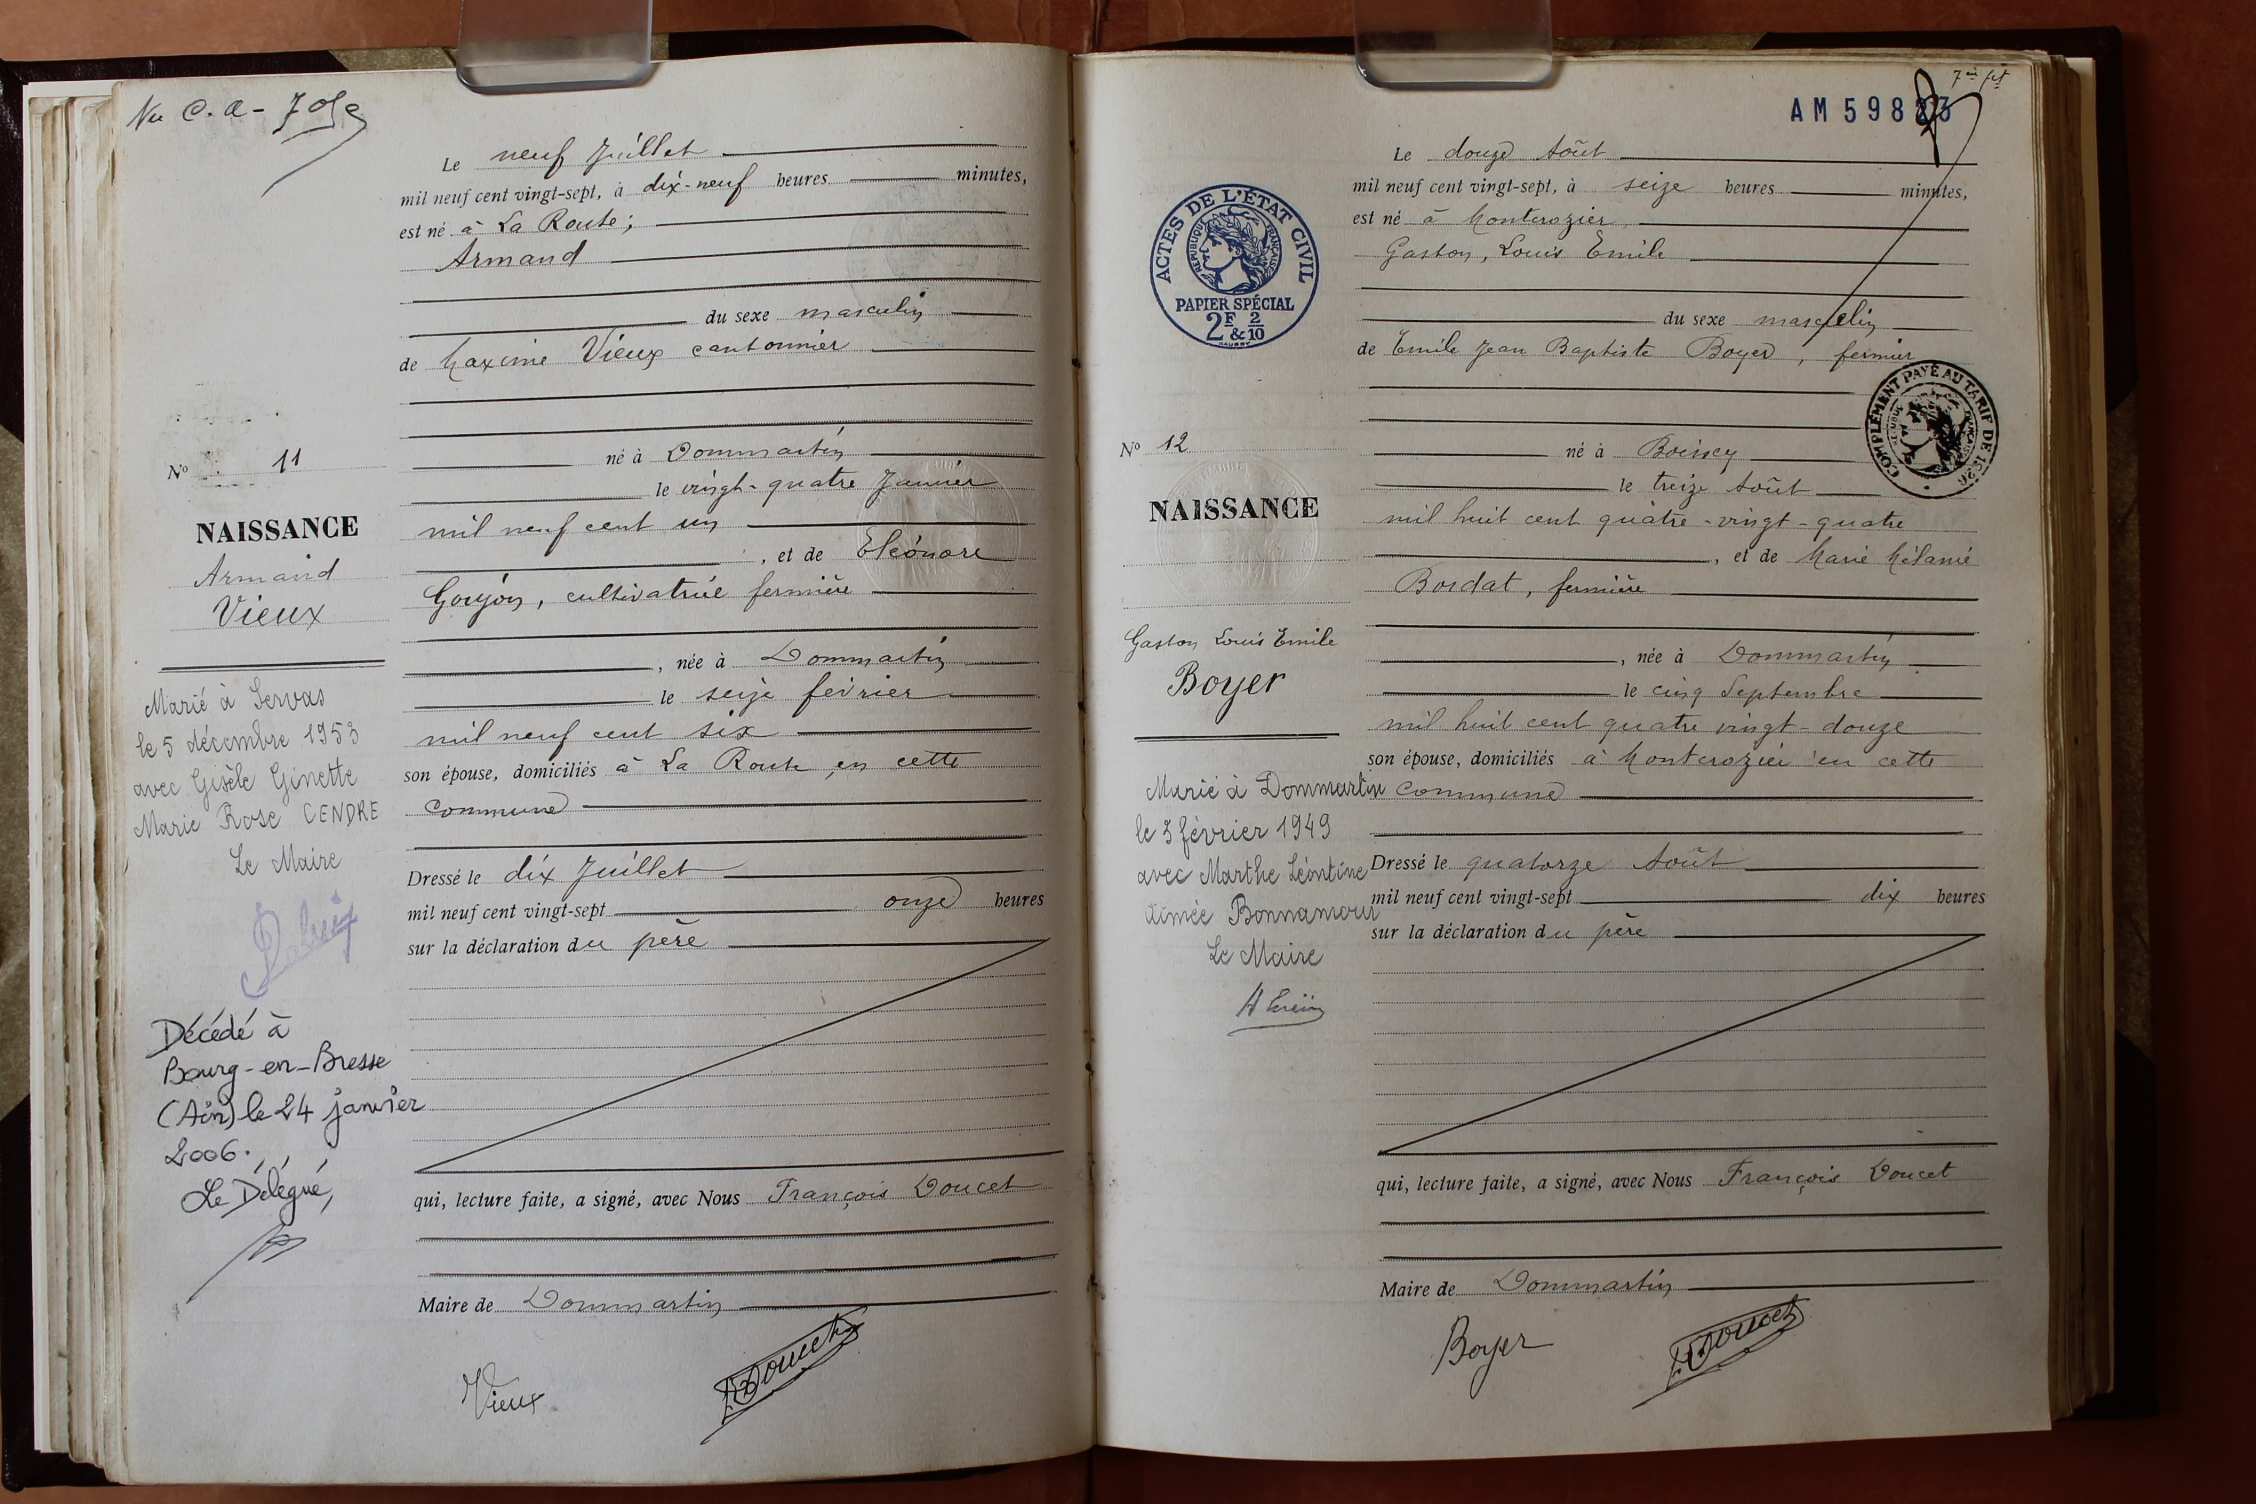 Le neuf Juillet
mil neuf cent vingt-sept, à dix-neuf heures minutes,
est né à La Route;
Armand
du sexe masculin
de Maxime Vieux cantonnier
né à Dommartin
le vingt-quatre Janvier
mil neuf cent un
, et de Eléonore
Goujon, cultivatrice fermière
, née à Dommartin
le seize février
mil neuf cent six
son épouse, domiciliés à La Route en cette
commune
Dressé le dix Juillet
mil neuf cent vingt-sept onze heures
sur la déclaration du père
qui, lecture faite, a signé, avec Nous François Doucet
Maire de Dommartin
Vieux
Doucet
Nº 11
NAISSANCE
Armand
Vieux
Marié à Servas
le 5 décembre 1953
avec Gisèle Ginette
Marie Rose CENDRE
Le Maire
Décédé à
Bourg-en-Bresse
(Ain) le 24 janvier
2006.
Le Délégué,
AM 59823
Le douze Août
mil neuf cent vingt-sept, à seize heures minutes,
est né à Montcrozier
Gaston, Louis Emile
du sexe masculin
de Emile Jean Baptiste Boyer, fermier
né à Boissey
le treize Août
mil huit cent quatre-vingt-quatre
, et de Marie Mélanie
Bordat, fermière
, née à Dommartin
le cinq Septembre
mil huit cent quatre vingt-douze
son épouse, domiciliés à Montcrozier en cette
commune
Dressé le quatorze Août
mil neuf cent vingt-sept dix heures
sur la déclaration du père
qui, lecture faite, a signé, avec Nous François Doucet
Maire de Dommartin
Boyer
Doucet
ACTES DE L'ÉTAT CIVIL
RÉPUBLIQUE FRANÇAISE
PAPIER SPÉCIAL
2F & 2/10
COMPLÉMENT PAYÉ AU TARIF DE 1926
Nº 12
NAISSANCE
Gaston Louis Emile
Boyer
Marié à Dommartin
le 5 février 1949
avec Marthe Léontine
Aimée Bonnamour
Le Maire